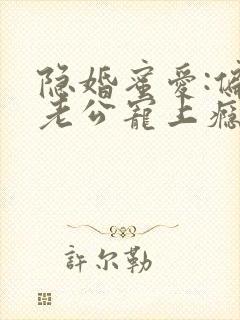 隐婚蜜爱:偏
老公寵上瘾
許尔勒